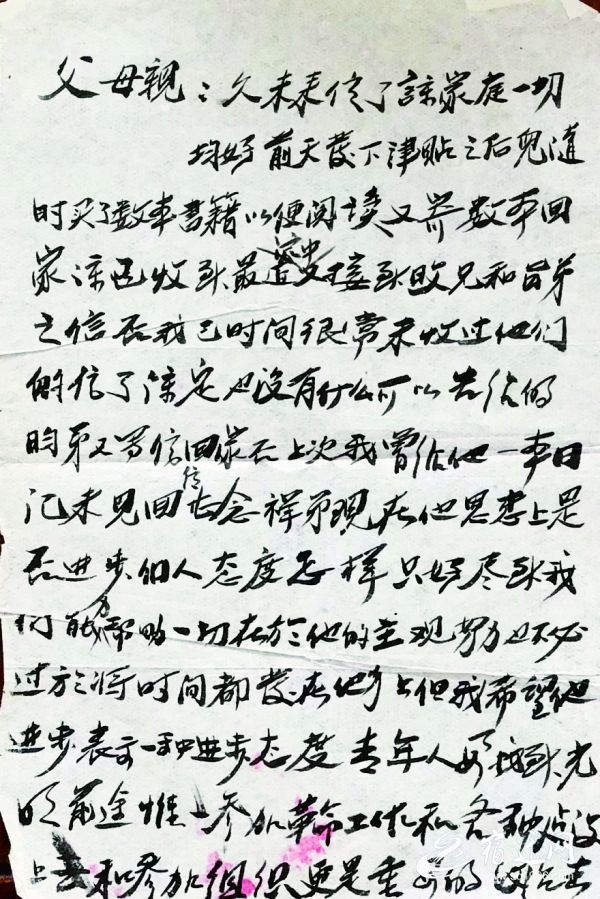 父母亲：久未奉信了谅家庭一切
均好前天发下津贴之后儿随
时买了数本书籍以便阅读又寄数本回
家谅已收到最近家中接到敗兄和昌弟
之信否我已时间很常未收过他们
的信了谅定也没有什么可以告诉的
昀弟又写信回家否上次我曾给他一本日
记未见回信甚念祥弟现在他思想上是
否进步个人态度怎样只好尽到我
们能力帮助一切在於他的主观努力也不必
过於将时间都发在他身上但我希望他
进步表示一种进步态度青年人要找到光
明前途惟一参加革命工作和各种建设
上去和参加组织更是重要的
宿迁网